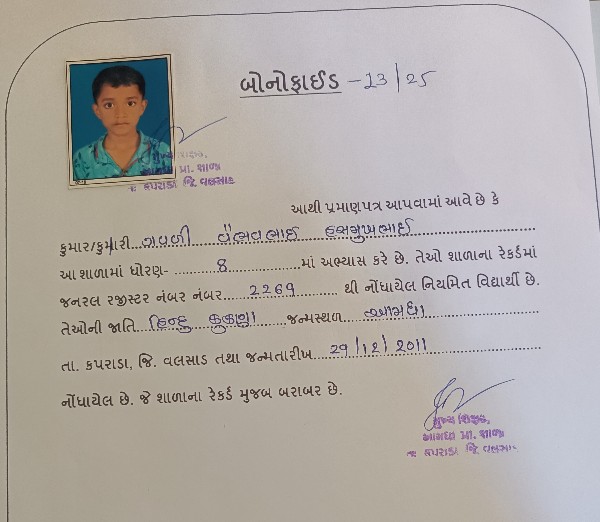 બોનોફાઈડ - 13/25
પ્રા. શાળા
કપરાડા જિ. વલસાડ
આથી પ્રમાણપત્ર આપવામાં આવે છે કે
કુમાર/કુમારી...ગવળી વૈભવભાઈ હસમુખભાઈ
આ શાળામાં ધોરણ- 8 માં અભ્યાસ કરે છે. તેઓ શાળાના રેકર્ડમાં
જનરલ રજીસ્ટર નંબર નંબર 2269 થી નોંધાયેલ નિયમિત વિદ્યાર્થી છે.
તેઓની જાતિ હિન્દુ કુકણા જન્મસ્થળ આમધા
તા. કપરાડા, જિ. વલસાડ તથા જન્મતારીખ 29/12/2011
નોંધાયેલ છે. જે શાળાના રેકર્ડ મુજબ બરાબર છે.
મુખ્ય શિક્ષક,
આમધા પ્રા. શાળા
કપરાડા જિ. વલસાડ